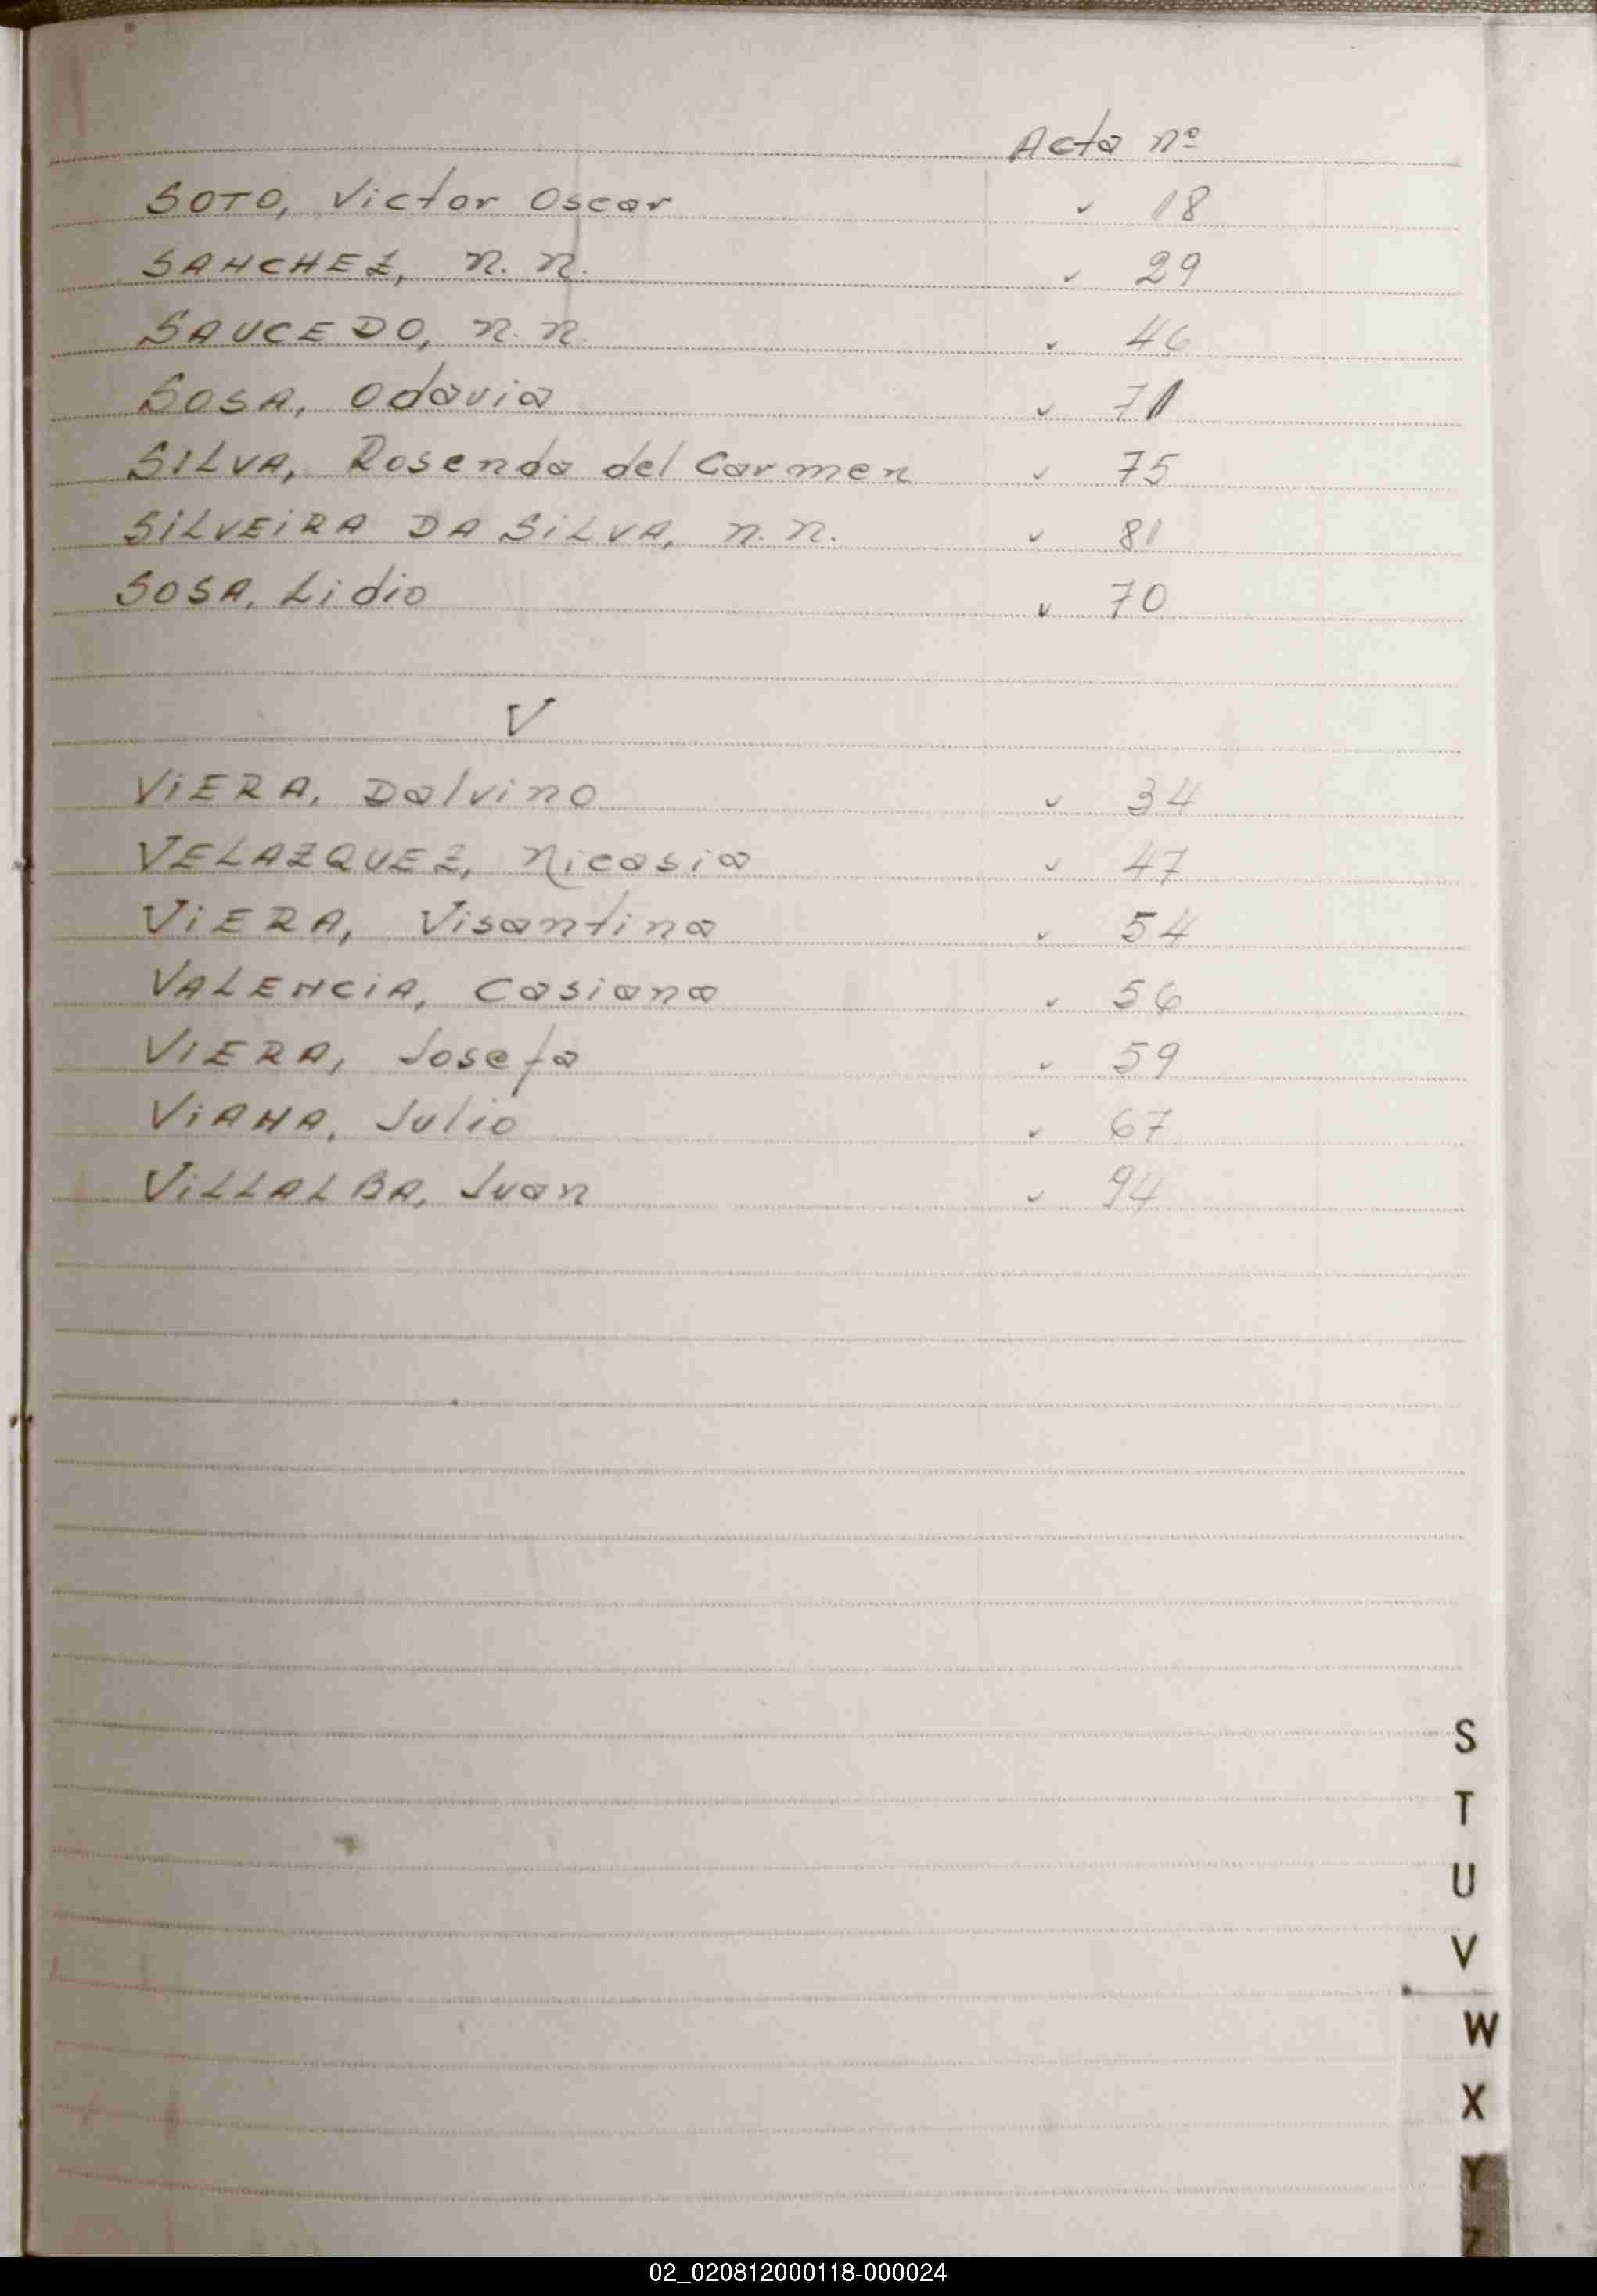 Acta nº
SOTO, Victor Oscar ✓ 18
SANCHEZ, n.n. ✓ 29
SAUCEDO, n.n. ✓ 46
SOSA, Odavia ✓ 71
SILVA, Rosenda del Carmen ✓ 75
SILVEIRA DA SILVA, n.n. ✓ 81
SOSA, Lidio ✓ 70
V
VIERA, Dalvino ✓ 34
VELAZQUEZ, Nicasia ✓ 47
VIERA, Visantina ✓ 54
VALENCIA, Casiana ✓ 56
VIERA, Josefa ✓ 59
VIANA, Julio ✓ 67
VILLALBA, Juan ✓ 94
S
T
U
V
W
X
Y
Z
02_020812000118-000024